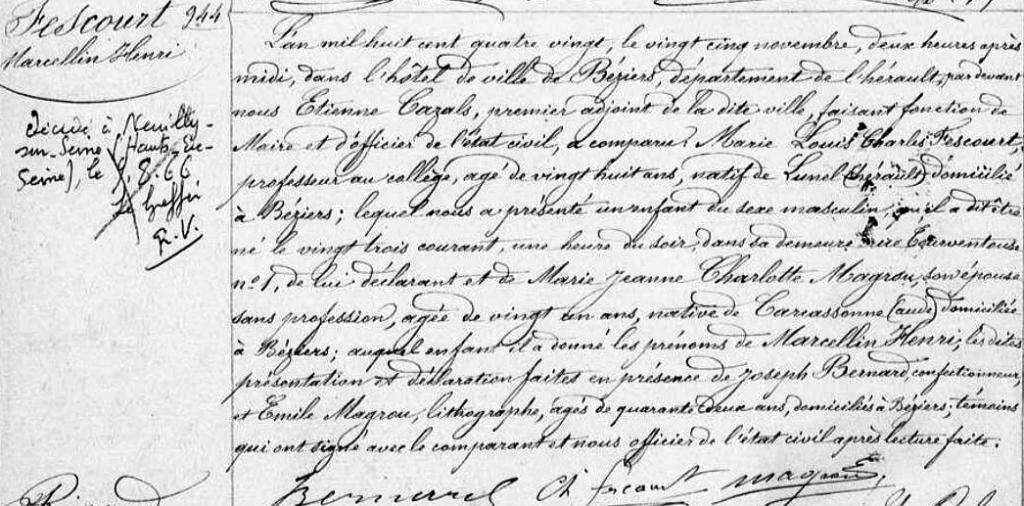 Fescourt 944
Marcellin Henri
décédé à Neuilly-
sur-Seine (Hauts-de-
Seine), le 8.66
Le Greffier
L'an mil huit cent quatre vingt, le vingt cinq novembre, deux heures après
midi, dans l'hôtel de ville de Béziers, département de l'hérault, par devant
nous Etienne Cazals, premier adjoint de la dite ville, faisant fonction de
Maire et d'officier de l'état civil, a comparu Marie Louis Charles Fescourt,
professeur au collège, agé de vingt huit ans, natif de Lunel (hérault) domicilié
à Béziers; lequel nous a présenté un enfant du sexe masculin qu'il a dit être
né le vingt trois courant, une heure du soir, dans sa demeure rue
n° 1, de lui déclarant et de Marie Jeanne Charlotte Magrou, son épouse
sans profession, agée de vingt un ans, native de Carcassonne (aude) domiciliée
à Béziers; auquel enfant il a donné les prénoms de Marcellin Henri; les dites
présentation et déclaration faites en présence de Joseph Bernard, confectionneur,
et Emile Magrou, lithographe, agés de quarante deux ans, domiciliés à Béziers; témoins
qui ont signé avec le comparant et nous officier de l'état civil après lecture faite.
Bernard Ch fescourt magrou E